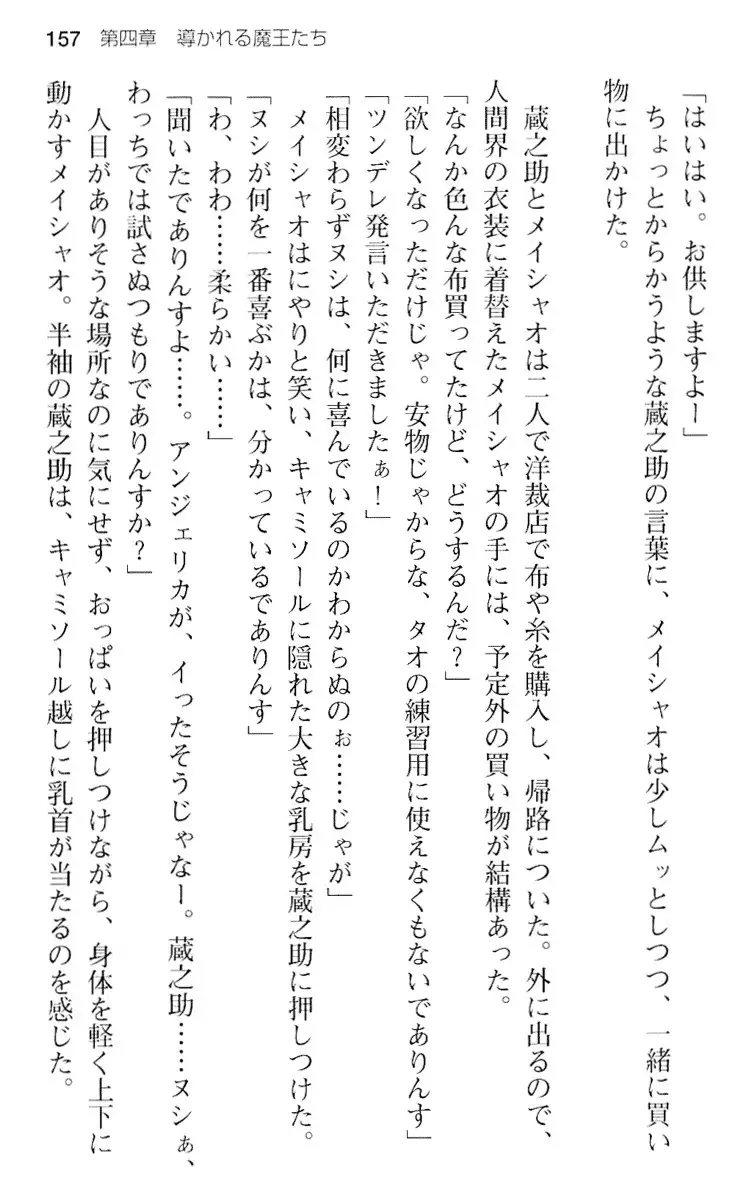 157 第四章 導かれる魔王たち
「はいはい。お供しますよー」
ちょっとからかうような蔵之助の言葉に、メイシャオは少しムッとしつつ、一緒に買い
物に出かけた。
蔵之助とメイシャオは二人で洋裁店で布や糸を購入し、帰路についた。外に出るので、
人間界の衣装に着替えたメイシャオの手には、予定外の買い物が結構あった。
「なんか色んな布買ってたけど、どうするんだ？」
「欲しくなっただけじゃ。安物じゃからな、タオの練習用に使えなくもないでありんす」
「ツンデレ発言いただきましたぁ！」
「相変わらずヌシは、何に喜んでいるのかわからぬのぉ……じゃが」
メイシャオはにやりと笑い、キャミソールに隠れた大きな乳房を蔵之助に押しつけた。
「ヌシが何を一番喜ぶかは、分かっているでありんす」
「わ、わわ……柔らかい……」
「聞いたでありんすよ……。アンジェリカが、イったそうじゃなー。蔵之助……ヌシぁ、
わっちでは試さぬつもりでありんすか？」
人目がありそうな場所なのに気にせず、おっぱいを押しつけながら、身体を軽く上下に
動かすメイシャオ。半袖の蔵之助は、キャミソール越しに乳首が当たるのを感じた。